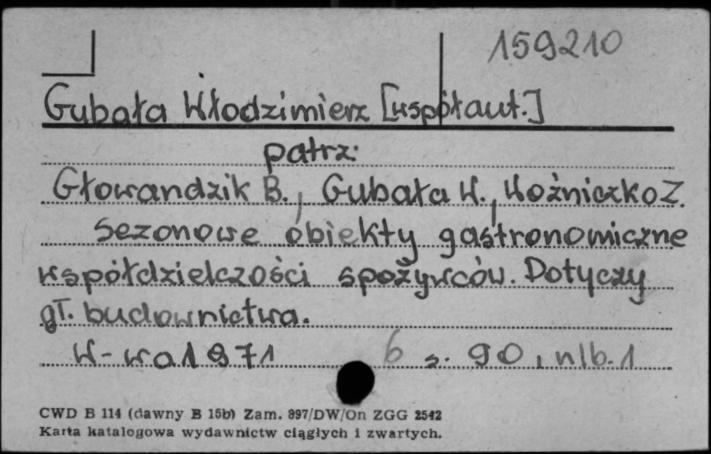 159210
Gubała Włodzimierz [współaut.]
patrz:
Głowandzik B., Gubała W., Woźniczko Z.
Sezonowe obiekty gastronomiczne
współdzielczości spożywców. Dotyczy
gł. budownictwa.
W-wa 1971 6 s. 90, nlb. 1
CWD B 114 (dawny B 15b) Zam. 897/DW/On ZGG 2542
Karta katalogowa wydawnictw ciągłych i zwartych.